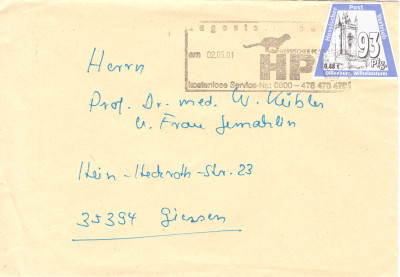 am 02.05.01
HESSISCHER
HP
kostenlose Service-Nr.: 0800 - 476 470 476
Hessischer Post
93
Pfg.
0,48 €
Dillenburg, Wilhelmsturm
Herrn
Prof. Dr. med. W. Kübler
u. Frau Gemahlin
Hein-Heckroth-Str. 23
35394 Giessen